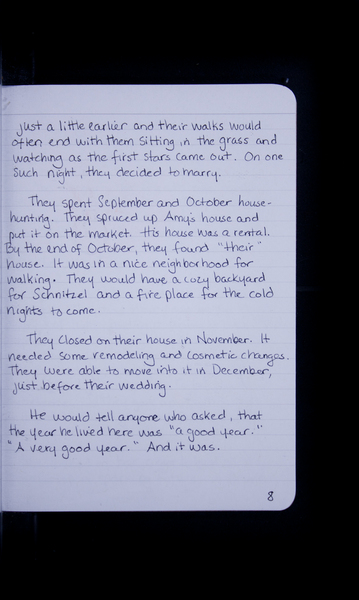 just a little earlier and their walks would
often end with them sitting in the grass and
watching as the first stars came out. On one
such night, they decided to marry.
They spent September and October house-
hunting. They spruced up Amy's house and
put it on the market. His house was a rental.
By the end of October, they found "their"
house. It was in a nice neighborhood for
walking. They would have a cozy backyard
for Schnitzel and a fire place for the cold
nights to come.
They closed on their house in November. It
needed some remodeling and cosmetic changes.
They were able to move into it in December,
just before their wedding.
He would tell anyone who asked, that
the year he lived here was "a good year."
"A very good year." And it was.
8